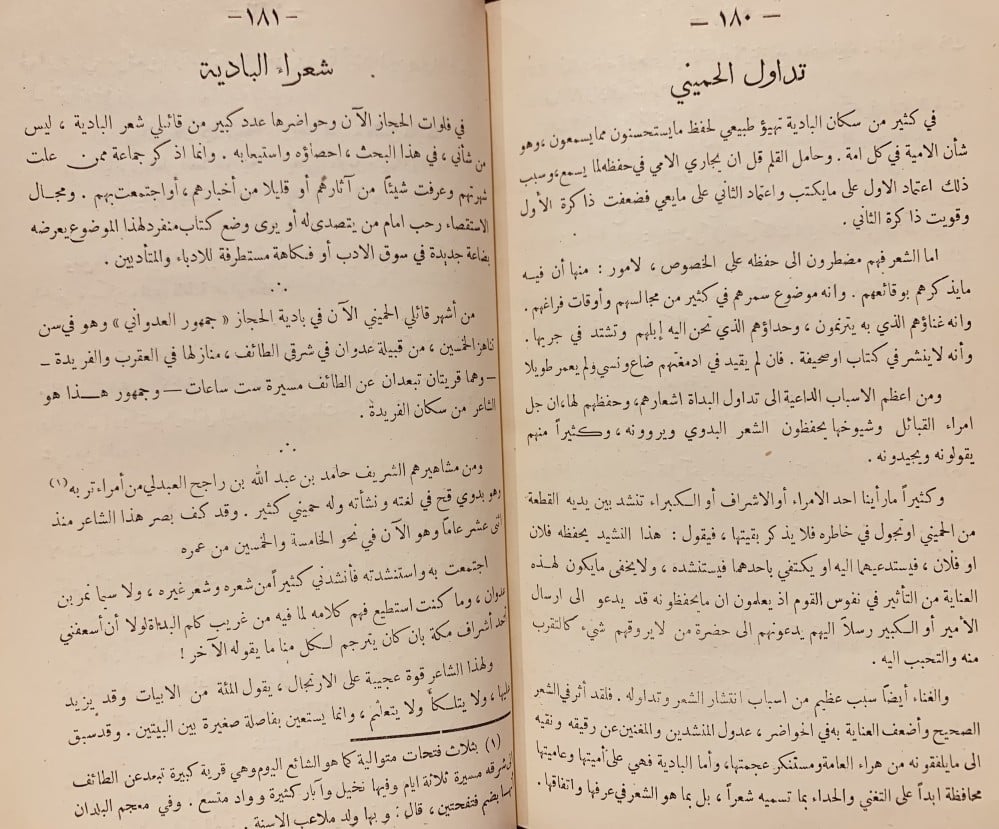 — ١٨٠ —
تداول الحميني
في كثير من سكان البادية تهيؤ طبيعي لحفظ ما يستحسنون مما يسمعون ، وهو
شأن الامية في كل امة . وحامل القلم قل ان يجاري الامي في حفظه لما يسمع ، وسبب
ذلك اعتماد الاول على ما يكتب واعتماد الثاني على ما يعي فضعفت ذاكرة الأول
وقويت ذاكرة الثاني .
اما الشعر فهم مضطرون الى حفظه على الخصوص ، لامور : منها أن فيه
ما يذكرهم بوقائعهم . وانه موضوع سمرهم في كثير من مجالسهم وأوقات فراغهم .
وانه غناؤهم الذي به يترنمون ، وحداؤهم الذي تحن اليه إبلهم وتشتد في جريها .
وأنه لا ينشر في كتاب او صحيفة . فان لم يقيد في ادمغتهم ضاع ونسي ولم يعمر طويلا
ومن اعظم الاسباب الداعية الى تداول البداة اشعارهم ، وحفظهم لها ، ان جل
امراء القبائل وشيوخها يحفظون الشعر البدوي ويروونه ، وكثيراً منهم
يقولونه ويجيدونه .
وكثيراً ما رأينا احد الامراء أو الاشراف أو الكبراء تنشد بين يديه القطعة
من الحميني او تجول في خاطره فلا يذكر بقيتها ، فيقول : هذا النشيد يحفظه فلان
او فلان ، فيستدعيهما اليه او يكتفي باحدهما فيستنشده ، ولا يخفى ما يكون لهذه
العناية من التأثير في نفوس القوم اذ يعلمون ان ما يحفظونه قد يدعو الى ارسال
الأمير أو الكبير رسلاً اليهم يدعونهم الى حضرة من لا يروقهم شيء كالتقرب
منه والتحبب اليه .
والغناء أيضاً سبب عظيم من اسباب انتشار الشعر وتداوله . فلقد أثر في الشعر
الصحيح وأضعف العناية به في الحواضر ، عدول المنشدين والمغنين عن رقيقه ونقيه
الى ما يلفقونه من هراء العامة ومستنكر عجمتها ، وأما البادية فهي على أميتها وعاميتها
محافظة ابداً على التغني والحداء بما تسميه شعراً ، بل بما هو الشعر في عرفها واتفاقها .
— ١٨١ —
شعراء البادية
في فلوات الحجاز الآن وحواضرها عدد كبير من قائلي شعر البادية ، ليس
من شأني ، في هذا البحث ، احصاؤه واستيعابه . وانما اذكر جماعة ممن علت
شهرتهم وعرفت شيئاً من آثارهم أو قليلا من أخبارهم ، أو اجتمعت بهم . ومجال
الاستقصاء رحب امام من يتصدى له أو يرى وضع كتاب منفرد لهذا الموضوع يعرضه
بضاعة جديدة في سوق الادب أو فكاهة مستطرفة للادباء والمتأدبين .
∴
من أشهر قائلي الحميني الآن في بادية الحجاز « جمهور العدواني » وهو في سن
تناهز الخمسين ، من قبيلة عدوان في شرقي الطائف ، منازلها في العقرب والفريدة –
– وهما قريتان تبعدان عن الطائف مسيرة ست ساعات — وجمهور هذا هو
الشاعر من سكان الفريدة .
∴
ومن مشاهيرهم الشريف حامد بن عبد الله بن راجح العبدلي من أمراء تربه (١)
وهو بدوي قح في لغته ونشأته وله حميني كثير . وقد كف بصر هذا الشاعر منذ
اثنى عشر عاماً وهو الآن في نحو الخامسة والخمسين من عمره
اجتمعت به واستنشدته فأنشدني كثيراً من شعره وشعر غيره ، ولا سيما نمر بن
عدوان ، وما كنت استطيع فهم كلامه لما فيه من غريب كلم البداة لولا أن أسعفني
احد أشراف مكة بان كان يترجم لكل منا ما يقوله الآخر !
ولهذا الشاعر قوة عجيبة على الارتجال ، يقول المئة من الابيات وقد يزيد
عليها ، ولا يتلكأ ولا يتعلثم ، وانما يستعين بفاصلة صغيرة بين البيتين . وقد سبق
(١) بثلاث فتحات متوالية كما هو الشائع اليوم وهي قرية كبيرة تبعد عن الطائف
الى شرقه مسيرة ثلاثة ايام وفيها نخيل وآبار كثيرة وواد متسع . وفي معجم البلدان
بضم ففتحتين ، قال : وبها ولد ملاعب الاسنة .